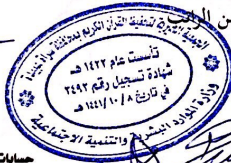 من الراتب
الجمعية الخيرية لتحفيظ القرآن الكريم بمحافظة
تأسست عام ١٤٢٢ هـ
شهادة تسجيل رقم ٣٤٩٢
في تاريخ ١٤٤١/١٠/٨ هـ
وزارة الموارد البشرية والتنمية الاجتماعية
حسابات